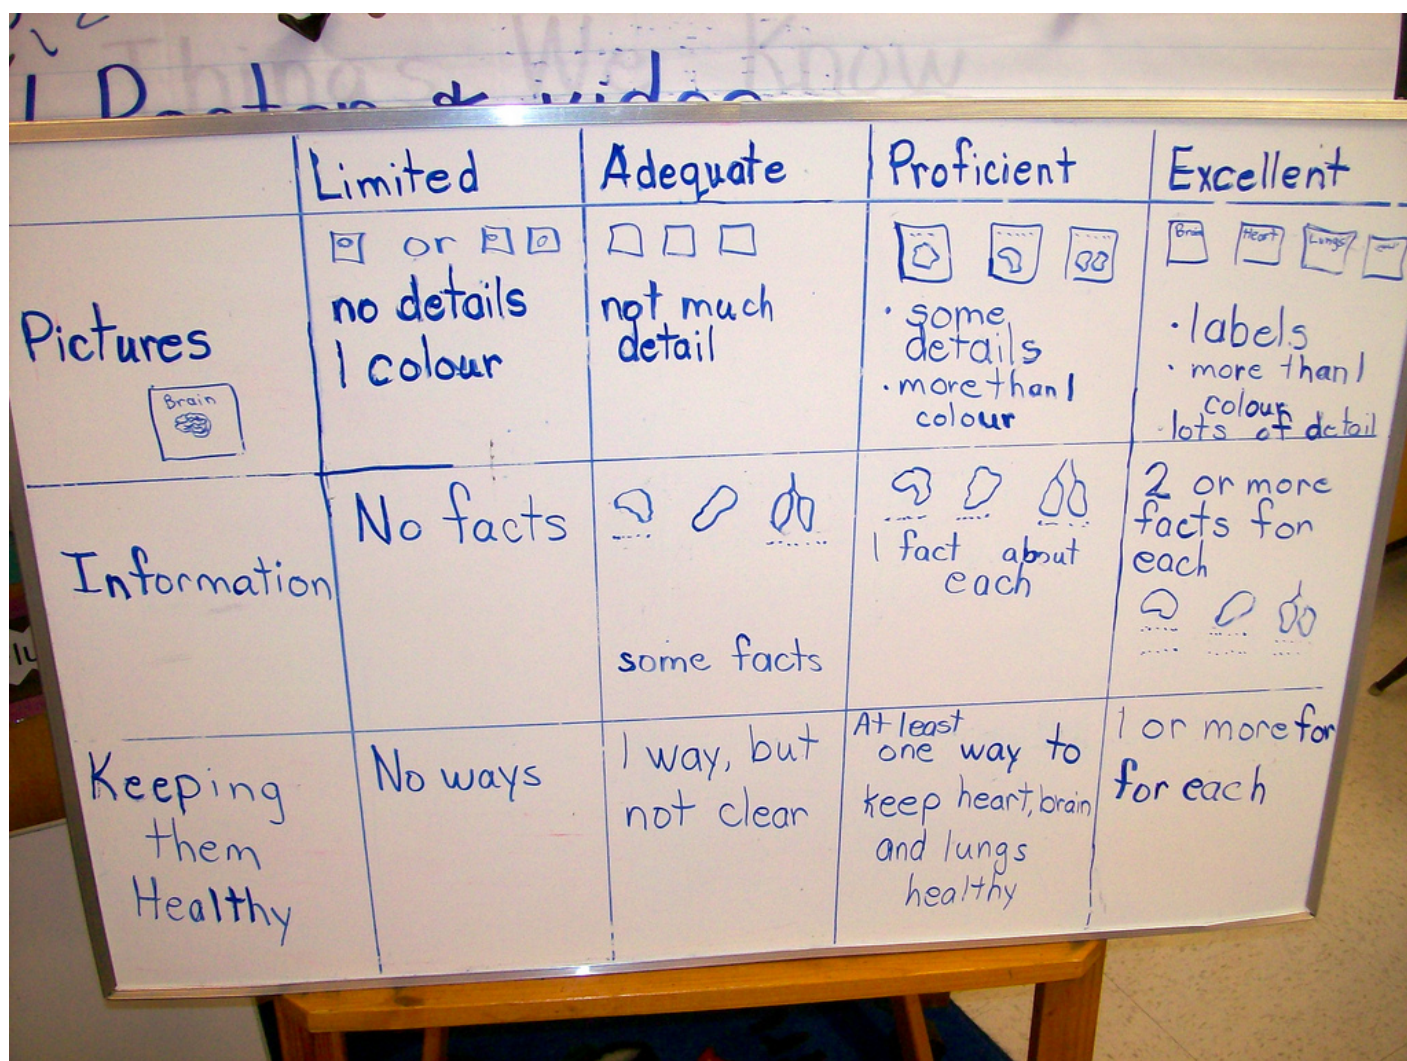 Things We Know
Poster & video
Limited
Adequate
Proficient
Excellent
Pictures
Brain
or
no details
1 colour
not much
detail
• some
details
• more than 1
colour
Brain
Heart
Lungs
• labels
• more than 1
colour
• lots of detail
Information
No facts
some facts
1 fact about
each
2 or more
facts for
each
Keeping
them
Healthy
No ways
1 way, but
not clear
At least
one way to
keep heart, brain
and lungs
healthy
1 or more for
for each